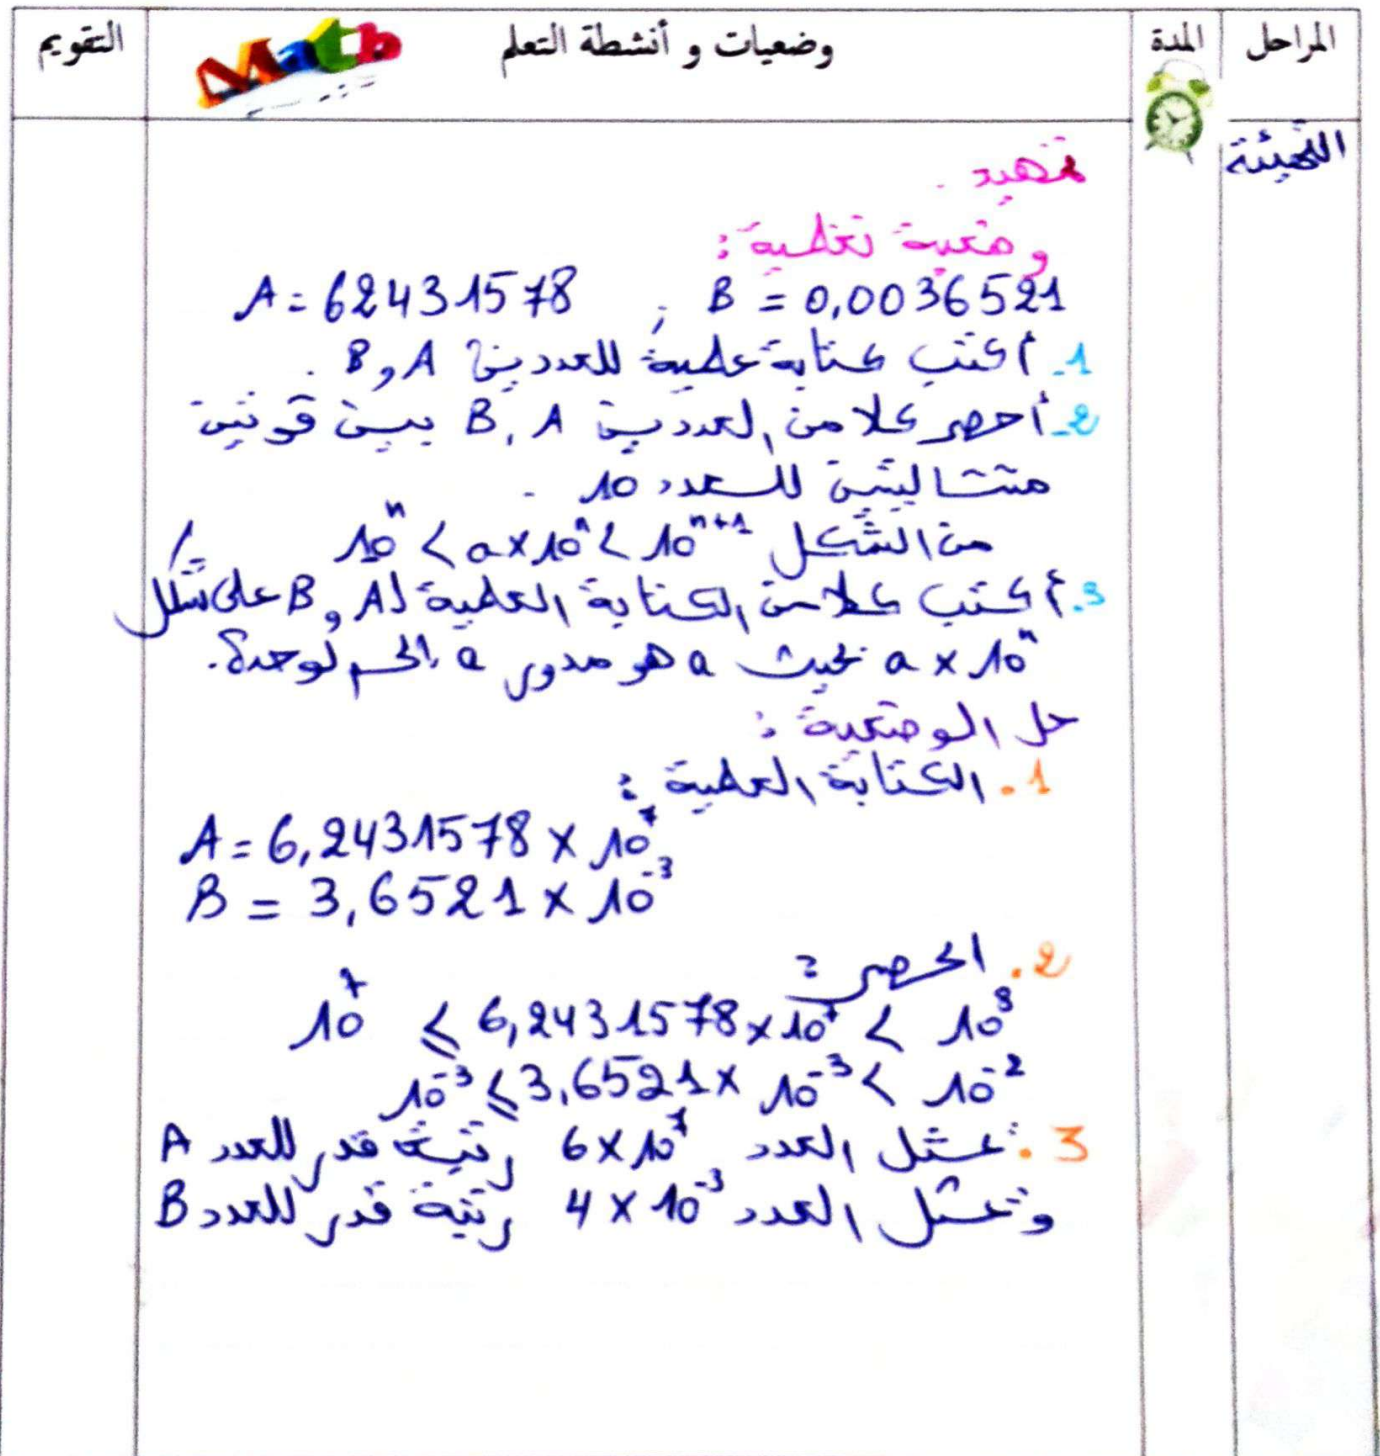 المراحل
المدة
وضعيات و أنشطة التعلم
Math
التقويم
التهيئة
تمهيد .
وضعية تعلمية :
A = 62431578 ; B = 0,0036521
1. أكتب كتابة علمية للعددين A و B .
2. أحصر كلا من العددين A , B بين قوتين
متتاليتين للعدد 10 .
من الشكل 10ⁿ < a × 10ⁿ < 10ⁿ⁺¹
3. أكتب كلا من الكتابة العلمية لـ A و B على شكل
a × 10ⁿ بحيث a هو مدور a إلى الوحدة.
حل الوضعية :
1. الكتابة العلمية :
A = 6,2431578 × 10⁷
B = 3,6521 × 10⁻³
2. الحصر :
10⁷ ⩽ 6,2431578 × 10⁷ < 10⁸
10⁻³ ⩽ 3,6521 × 10⁻³ < 10⁻²
3. يمثل العدد 6 × 10⁷ رتبة قدر للعدد A
و يمثل العدد 4 × 10⁻³ رتبة قدر للعدد B